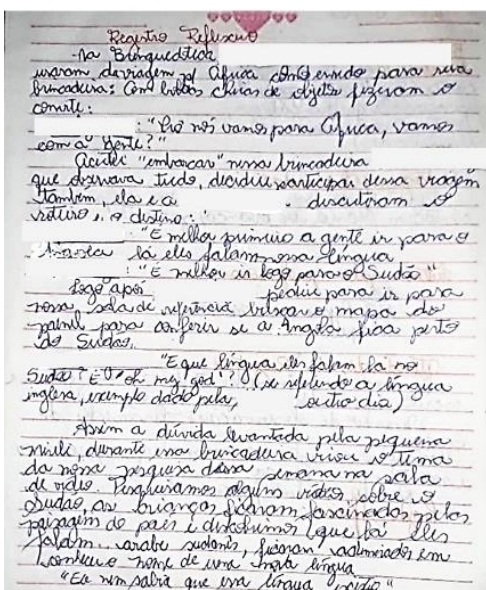 Registro Reflexivo
Na Brinquedoteca
usaram da viagem p/ África como enredo para sua
brincadeira: Com bolsas cheias de objetos fizeram o
convite:
: "Prô nós vamos para África, vamos
com a gente?"
Aceitei "embarcar" nessa brincadeira
que observava tudo, decidiu participar dessa viagem
também, ela e a . discutiram o
roteiro, o destino:
: "É melhor primeiro a gente ir para o
lá eles falam nossa língua
: "É melhor ir logo para o Sudão"
Logo após pediu para ir para
nossa sala de referência buscar o mapa do
painel para conferir se a Angola fica perto
do Sudão.
"E que língua eles falam lá no
Sudão? É o "oh my god"? (se referindo a língua
inglesa, exemplo dado pela, outro dia)
Assim a dúvida levantada pela pequena
durante essa brincadeira virou o tema
da nossa pesquisa dessa semana na sala
de vídeo. Pesquisamos alguns vídeos sobre o
Sudão, as crianças ficaram fascinados pelas
paisagem do país e descobrimos que lá eles
falam arabe sudanês, ficaram admirados em
conhecer o nome de uma nova língua
"Eu nem sabia que essa língua existia"